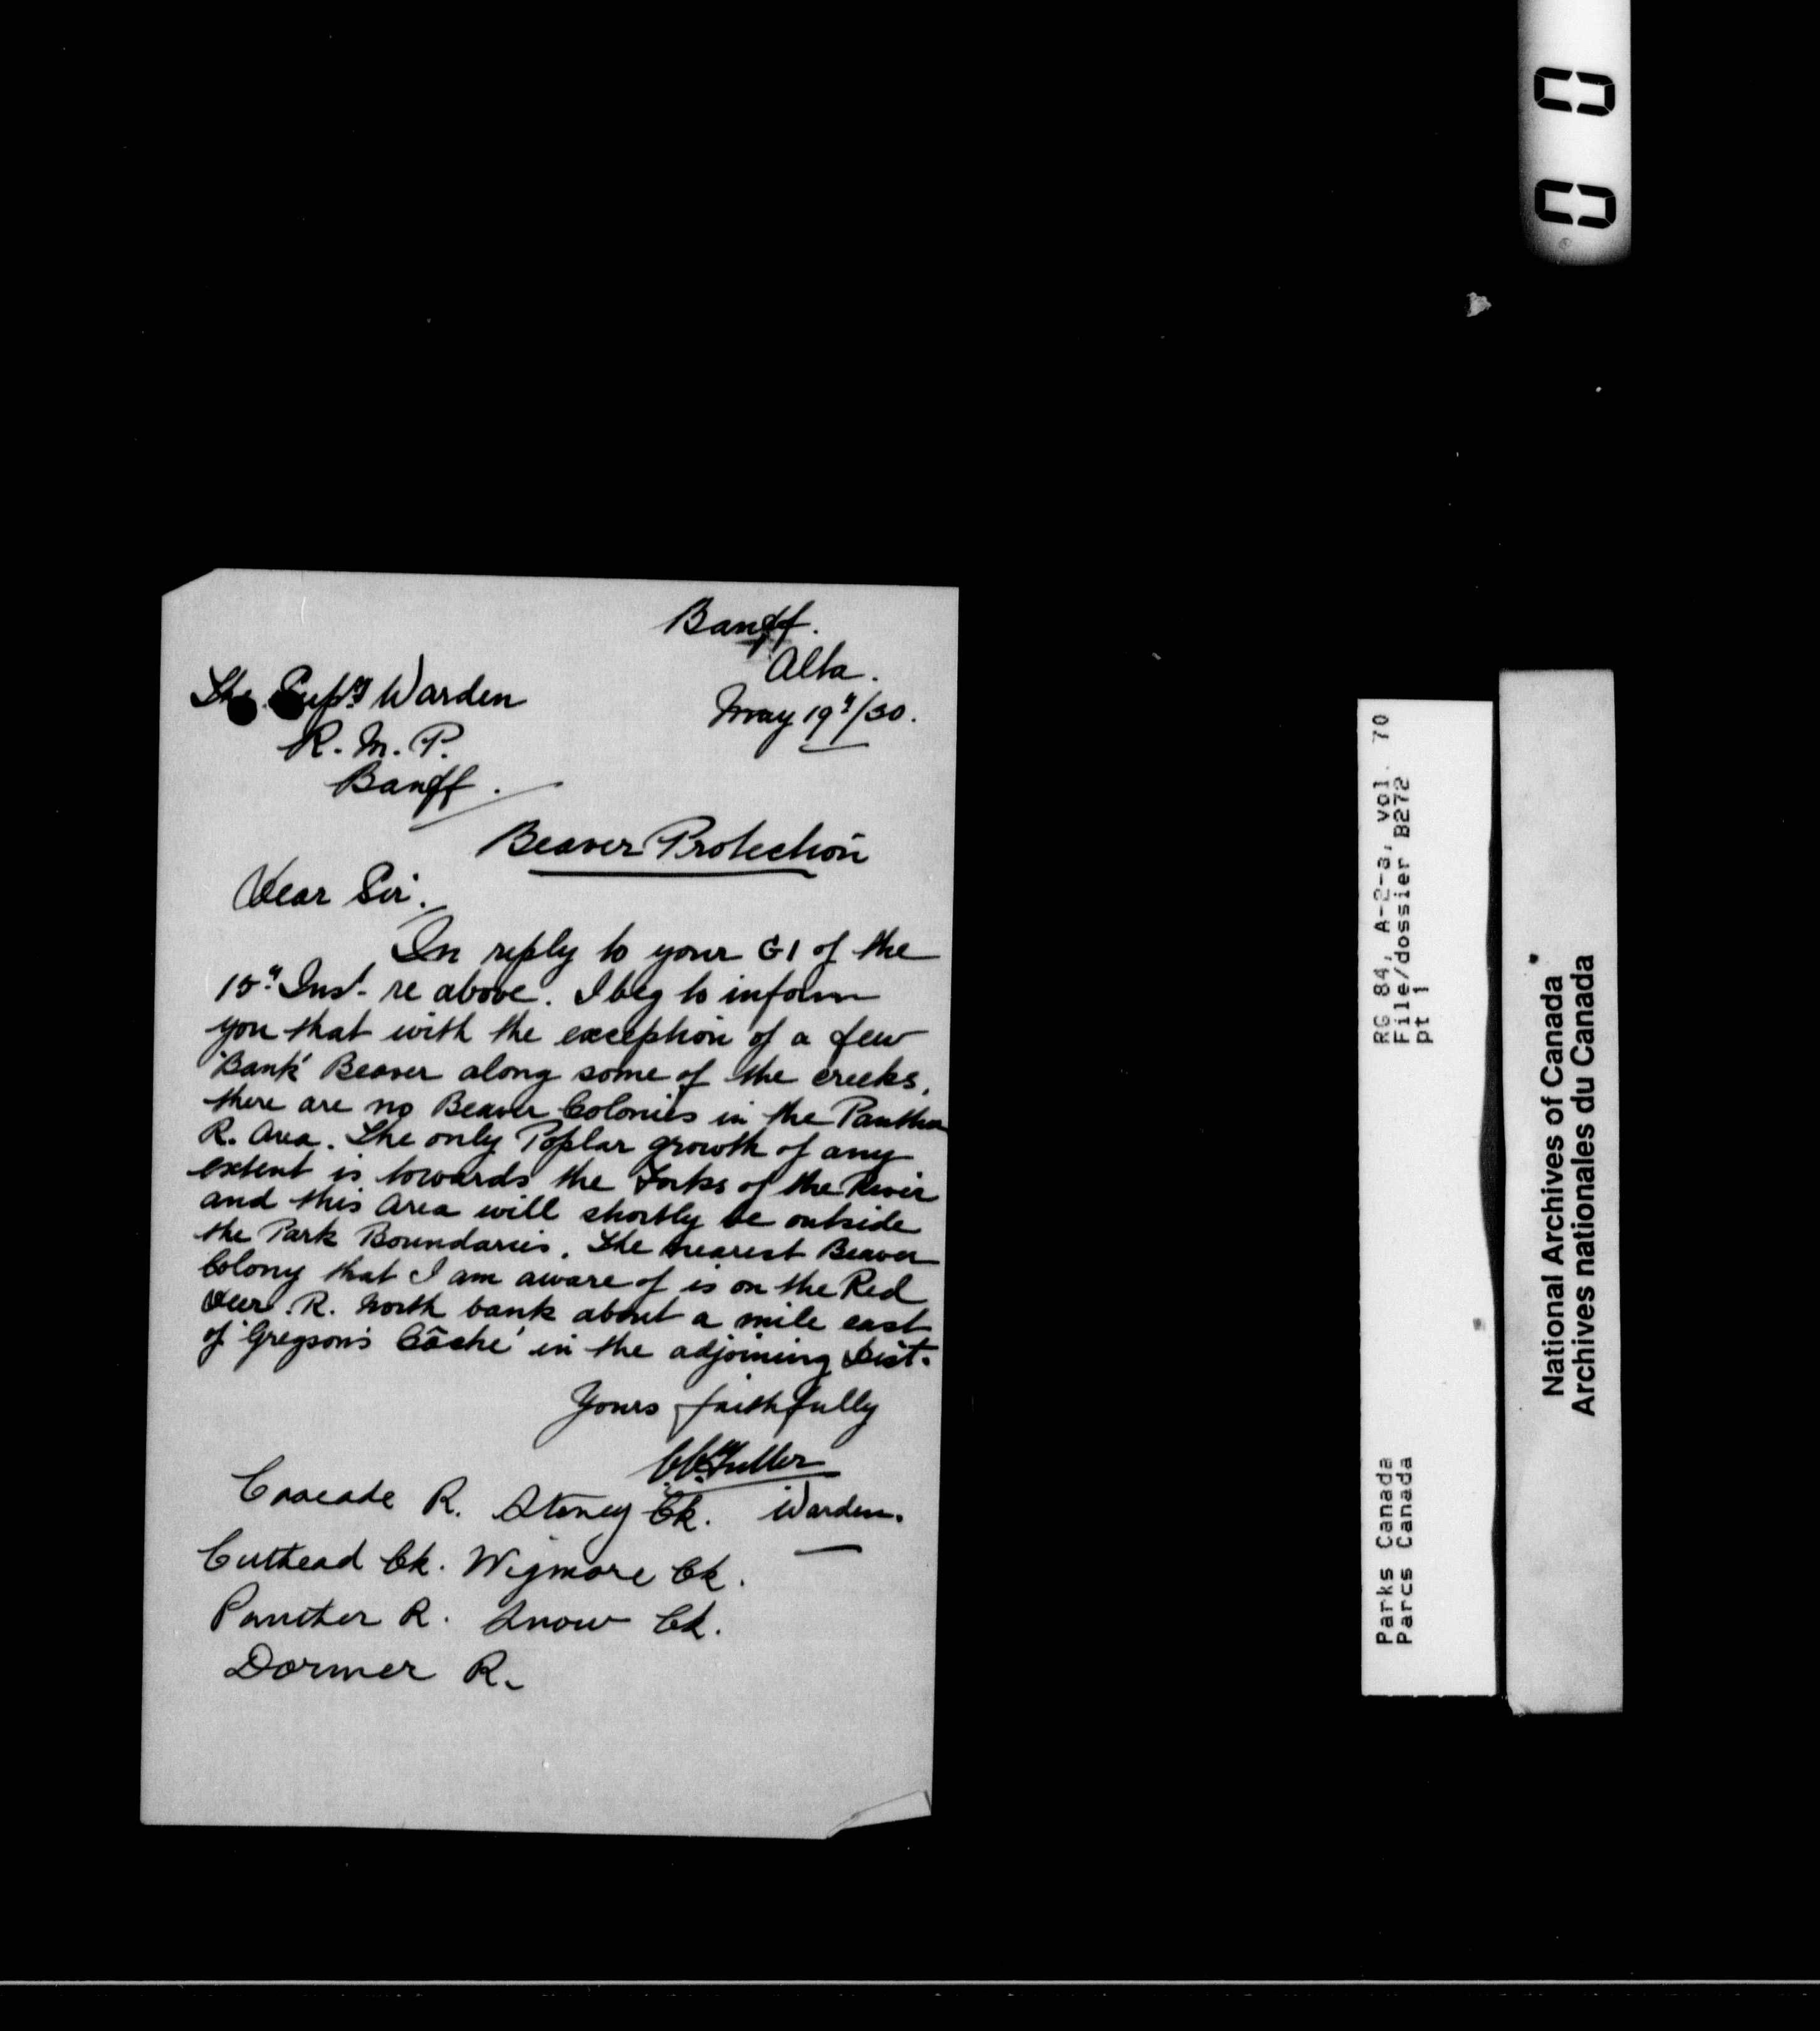 Banff.
Alta.
May 19"/30.
The Supvg Warden
R. M. P.
Banff.
Beaver Protection
Dear Sir.
In reply to your G1 of the
15" Inst- re above. I beg to inform
you that with the exception of a few
'Bank' Beaver along some of the creeks,
there are no Beaver Colonies in the Panther
R. Area. The only Poplar growth of any
extent is towards the Forks of the River
and this Area will shortly be outside
the Park Boundaries. The nearest Beaver
Colony that I am aware of is on the Red
Deer. R. North bank about a mile east
of 'Gregson's Câche' in the adjoining Dist.
Yours faithfully
Fuller
Warden.
Cascade R. Stoney Ck.
Cuthead Ck. Wigmore Ck.
Panther R. Snow Ck.
Dormer R.
00
RG 84, A-2-a, vol. 70
File/dossier B272
pt 1
Parks Canada
Parcs Canada
National Archives of Canada
Archives nationales du Canada